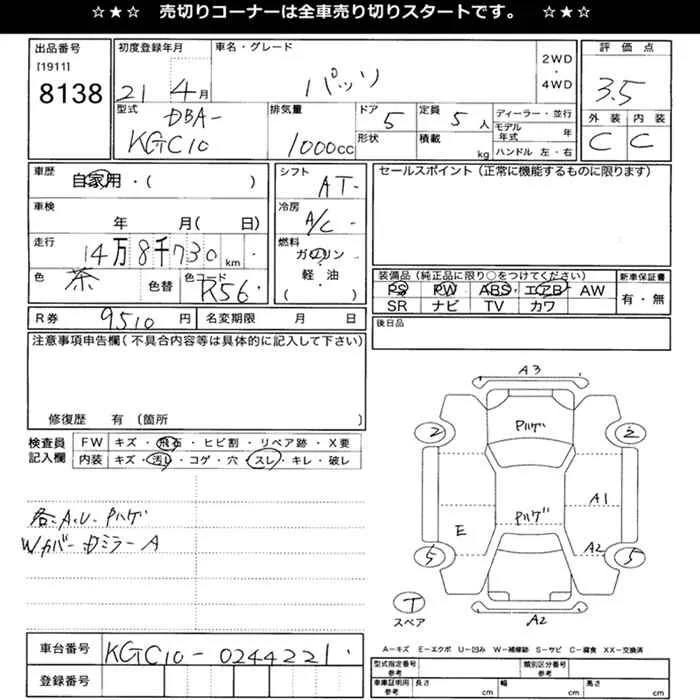 ☆★☆ 売切りコーナーは全車売り切りスタートです。 ☆★☆
出品番号
[1911]
8138
初度登録年月
21 4月
車名・グレード
パッソ
2WD
・
4WD
評価点
3.5
外装 内装
C C
型式
DBA-
KGC10
排気量
1000cc
ドア
5
形状
定員
5人
積載
kg
ディーラー・並行
モデル年式 年
ハンドル 左・右
車歴
自家用・( )
車検
年 月( 日)
走行
14万8千730km
色
茶
色替
色コード
R56
シフト
AT-
冷房
A/C-
燃料
ガソリン
軽・油
( )
セールスポイント(正常に機能するものに限ります)
装備品(純正品に限り○をつけてください)
PS PW ABS・エアB AW
SR ナビ TV カワ
新車保証書
有・無
R券 9510円
名変期限 月 日
後日品
注意事項申告欄(不具合内容等は具体的に記入して下さい)
修復歴 有 (箇所 )
検査員
記入欄
FW キズ・飛石・ヒビ割・リペア跡・X要
内装 キズ・汚し・コゲ・穴・スレ・キレ・破レ
各:A.U.Pハゲ
Wカバー・Dミラー A
A3
Pハゲ
2
2
A1
Pハゲ
E
A2
5
5
T
スペア
A2
A-キズ E-エクボ U-凹み W-補修跡 S-サビ C-腐食 XX-交換済
車台番号
KGC10-0244221
登録番号
型式指定番号
参考
類別区分番号
参考
車庫証明用
参考
長さ cm
幅 cm
高さ cm